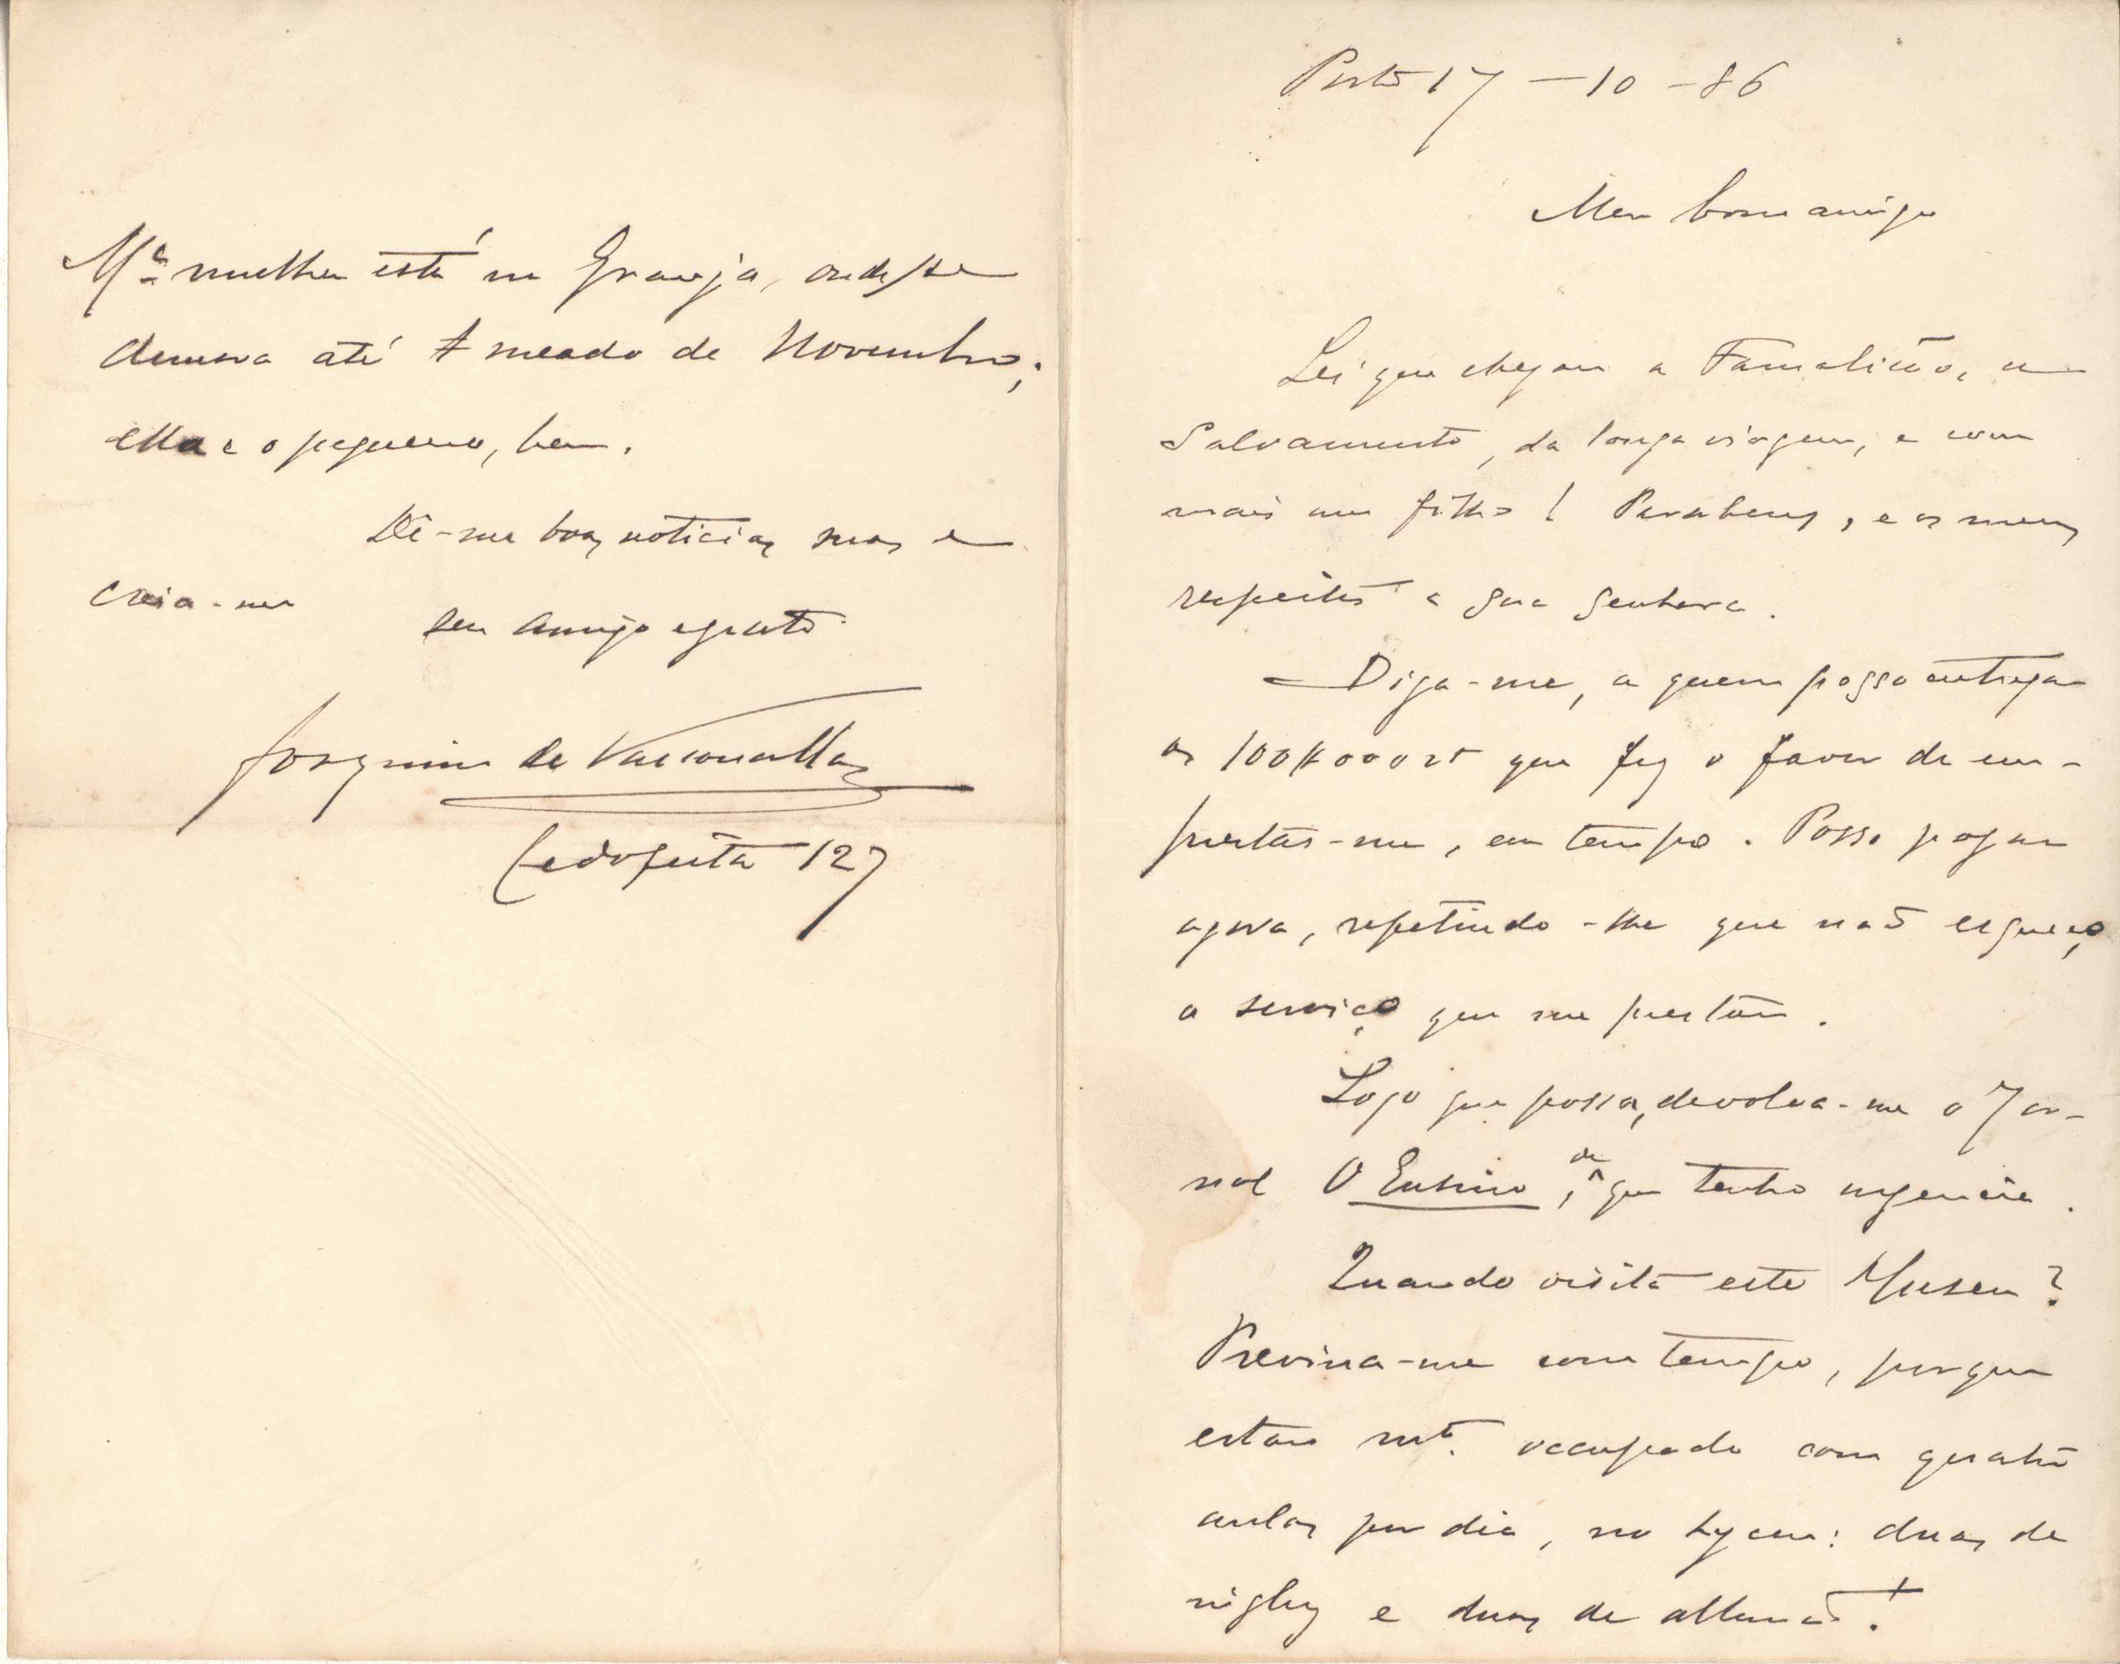 Porto 17 – 10 – 86
Meu bom amigo
Sei que chegou a Famalicão, a
Salvamento, da longa viagem, e com
mais um filho! Parabens, e os meus
respeitos a Sua Senhora.
Diga-me, a quem posso entregar
os 100$000 rs que fez o favor de em-
prestar-me, em tempo. Posso pagar
agora, repetindo-lhe que não esqueço
o serviço que me prestou.
Logo que possa, devolva-me o Jor-
nal O Ensino, de que tenho urgencia.
Quando visita este Museu?
Previna-me com tempo, porque
estou mto. occupado com quatro
aulas por dia, no Lyceu: duas de
inglez e duas de allemão!
Mª mulher está na Granja, onde se
demora até meado de Novembro;
ella e o pequeno, bem.
Dê-me boas noticias suas e
creia-me
seu amigo e grato
Joaquim de Vasconcellos
Cedofeita 127